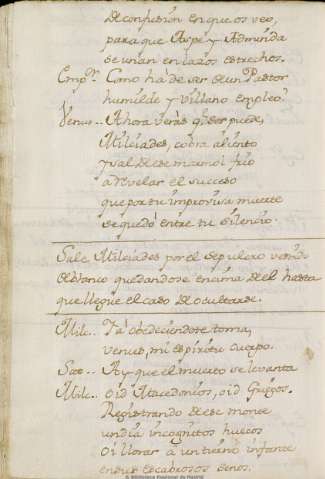 de confusión en que os veo,
para que Aspe y Admunda
se unan en lazos estrechos.
Emp.r Como ha de ser de un Pastor
humilde y villano empleo?
Venus.. Ahora verás q.e ser puede,
Milciades, cobra aliento
y sal de ese marmol frio
a revelar el suceso
que por tu improvisa muerte
se quedó entre tu silencio.
Sale Milciades por el sepulcro vestido
de blanco quedandose encima de el hasta
que llegue el caso de ocultarse.
Milc.. Ya obedeciendote torna,
venus, mi espiritu cuerpo.
Sac.. Ay que el muerto se levanta
Milc.. oid Macedonios, oid Griegos.
Registrando de ese monte
un dia incognitos huecos
oi llorar a un tierno infante
en sus escabrosos senos.
Biblioteca Nacional de Madrid